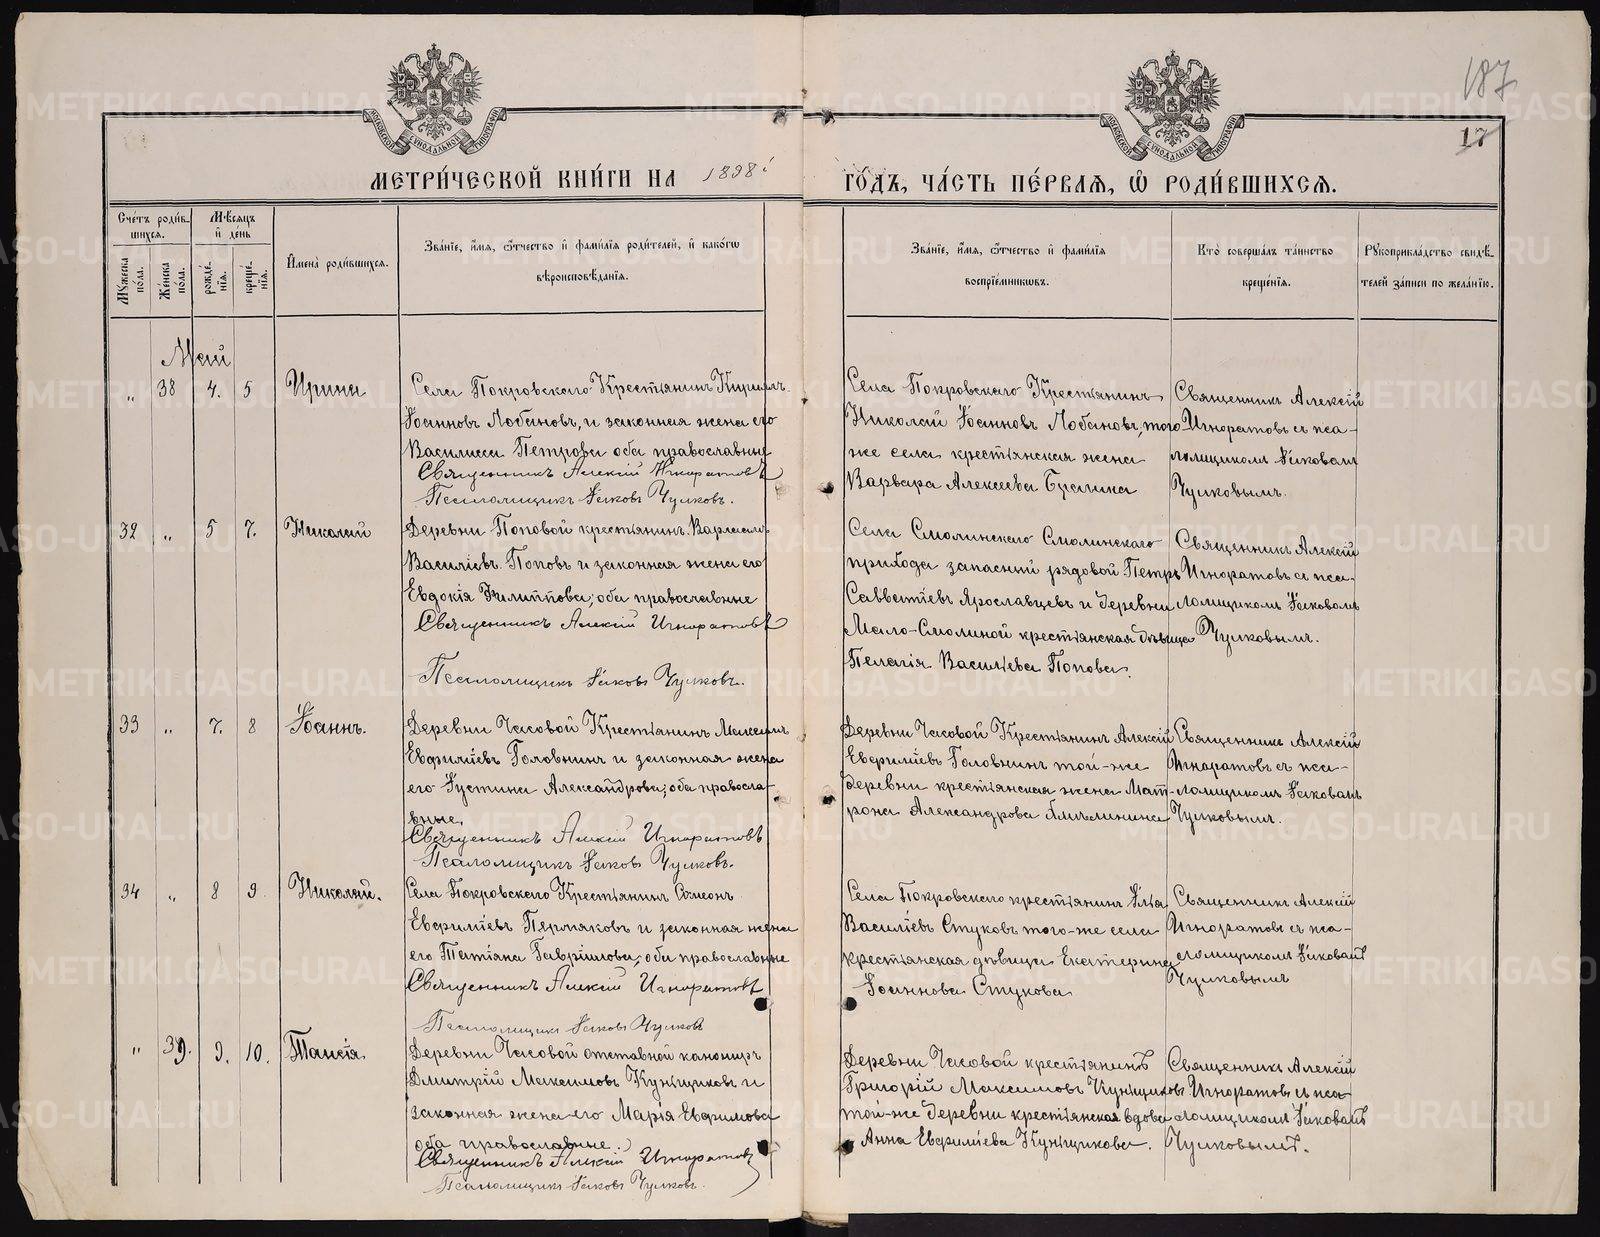 187
17
МЕТРИ́ЧЕСКОЙ КНИ́ГИ НА 1898 г
ГО́ДЪ, ЧА́СТЬ ПЕ́РВАЯ, Ѡ РОДИ́ВШИХСЯ.
Сче́тъ роди́в-
шихся.
Му́жеска по́ла.
Же́нска по́ла.
Мѣ́сяцъ
и҆ де́нь
рожде́нїя.
креще́нїя.
И҆мена̀ роди́вшихся.
Зва́нїе, и҆́мя, ѻ҆́тчество и҆ фами́лїя роди́телей, и҆ како́гѡ
вѣроисповѣ́данїя.
Зва́нїе, и҆́мя, ѻ҆́тчество и҆ фами́лїя
воспрїе́мникѡвъ.
Кто̀ соверша́лъ та́инство
креще́нїя.
Рꙋкоприкла́дство свидѣ́-
телей за́писи по жела́нїю.
Май
„ 38 4. 5 Ирина
Села Покровскаго Крестьянинъ Кириллъ
Іоанновъ Лобановъ, и законная жена его
Василиса Петрова оба православные
Священникъ Алексій Игноратовъ
Псаломщикъ Іаковъ Чулковъ.
Села Покровскаго Крестьянинъ
Николай Іоанновъ Лобановъ, того-
же села крестьянская жена
Варвара Алексеева
Священникъ Алексій
Игноратовъ съ пса-
ломщикомъ Іаковомъ
Чулковымъ.
32 „ 5 7. Николай
Деревни Поповой крестьянинъ Варлаамъ
Василіевъ Поповъ и законная жена его
Евдокія Филиппова; оба православные
Священникъ Алексій Игноратовъ
Псаломщикъ Іаковъ Чулковъ.
Села Смолинскаго Смолинскаго
прихода запасный рядовой Петръ
Савватіевъ Ярославцевъ и деревни
Мало-Смолиной крестьянская дѣвица
Пелагія Василіева Попова.
Священникъ Алексій
Игноратовъ съ пса-
ломщикомъ Іаковомъ
Чулковымъ.
33 „ 7. 8 Іоаннъ.
Деревни Часовой Крестьянинъ Максимъ
Евфиміевъ Головнинъ и законная жена
его Іустина Александрова; оба правосла-
вные.
Священникъ Алексій Игноратовъ
Псаломщикъ Іаковъ Чулковъ.
Деревни Часовой Крестьянинъ Алексій
Евфиміевъ Головнинъ той-же
деревни крестьянская жена Мат-
рона Александрова
Священникъ Алексій
Игноратовъ съ пса-
ломщикомъ Іаковомъ
Чулковымъ.
34 „ 8 9. Николай.
Села Покровскаго Крестьянинъ Симеонъ
Евфиміевъ Пермяковъ и законная жена
его Татіана Гавріилова; оба православные
Священникъ Алексій Игноратовъ
Псаломщикъ Іаковъ Чулковъ
Села Покровскаго крестьянинъ Илья
Василіевъ Стуковъ того-же села
крестьянская дѣвица Екатерина
Іоаннова Стукова.
Священникъ Алексій
Игноратовъ съ пса-
ломщикомъ Іаковомъ
Чулковымъ
„ 39. 9. 10. Таисія.
Деревни Часовой отставной канониръ
Дмитрій Максимовъ Куницковъ и
законная жена его Марія Евфимова
оба православные.
Священникъ Алексій Игноратовъ
Псаломщикъ Іаковъ Чулковъ.
Деревни Часовой крестьянинъ
Григорій Максимовъ Куницковъ
той-же деревни крестьянская вдова
Анна Евфиміева Куницкова.
Священникъ Алексій
Игноратовъ съ пса-
ломщикомъ Іаковомъ
Чулковымъ.